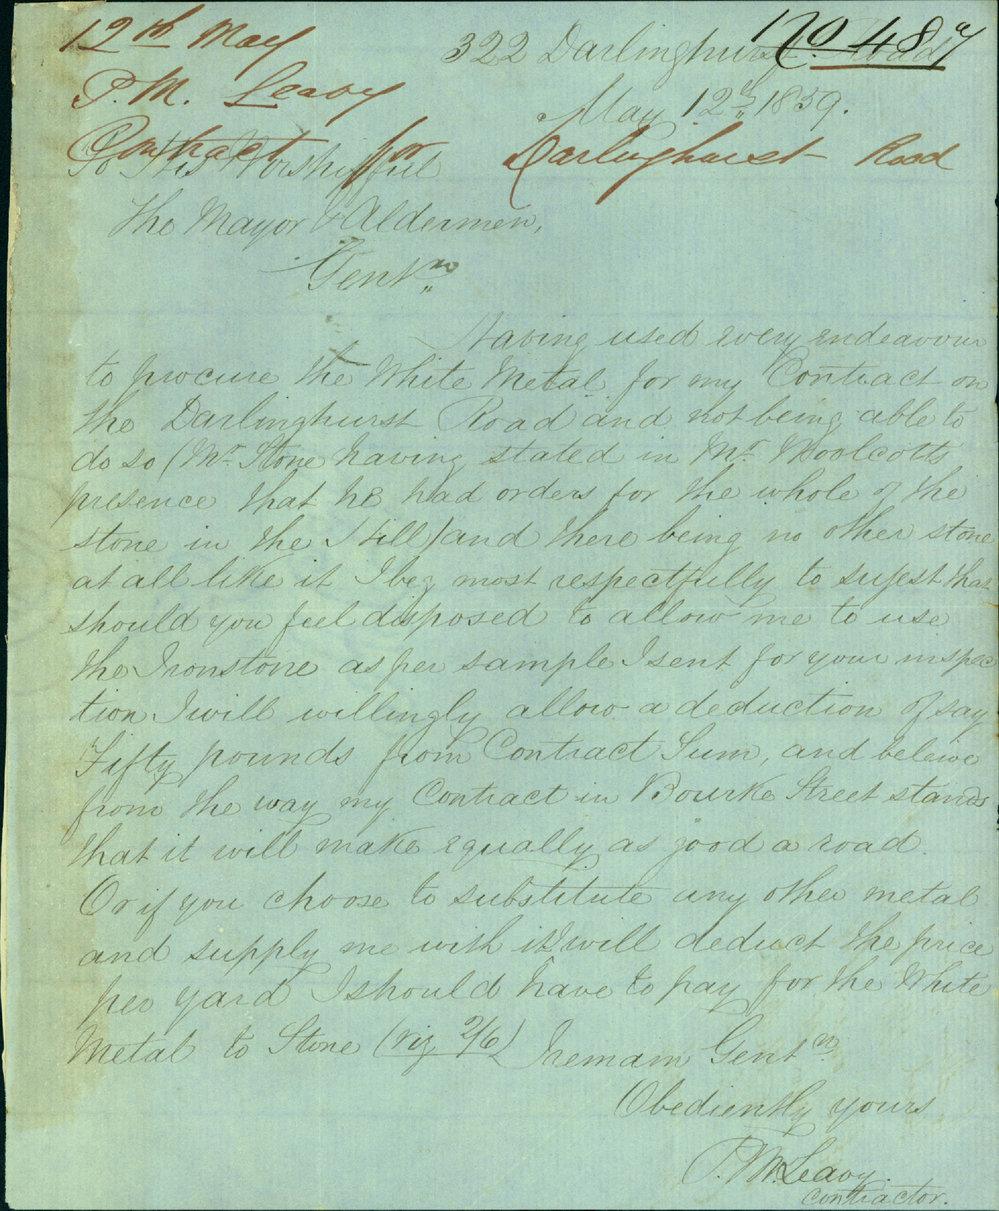 12th May
P. M. Leavy
Contract for Darlinghurst Road
No 487
322 Darlinghurst Road
May 12th, 1859.
To His Worshipful
The Mayor & Aldermen,
Gentn
Having used every endeavour
to procure the White Metal for my Contract on
the Darlinghurst Road and not being able to
do so (Mr Stone having stated in Mr Woolcotts
presence that he had orders for the whole of the
stone in the Hill) and there being no other stone
at all like it I beg most respectfully to sugest that
should you feel disposed to allow me to use
the Ironstone as per sample I sent for your inspec
tion I will willingly allow a deduction of say
Fifty pounds from Contract Sum, and beleive
from the way my Contract in Bourke Street stands
that it will make equally as good a road.
Or if you choose to substitute any other metal
and supply me with it I will deduct the price
per yard I should have to pay for the White
Metal to Stone (viz 2/6) I remain Gentn
Obediently yours
P. McLeavy.
contractor.